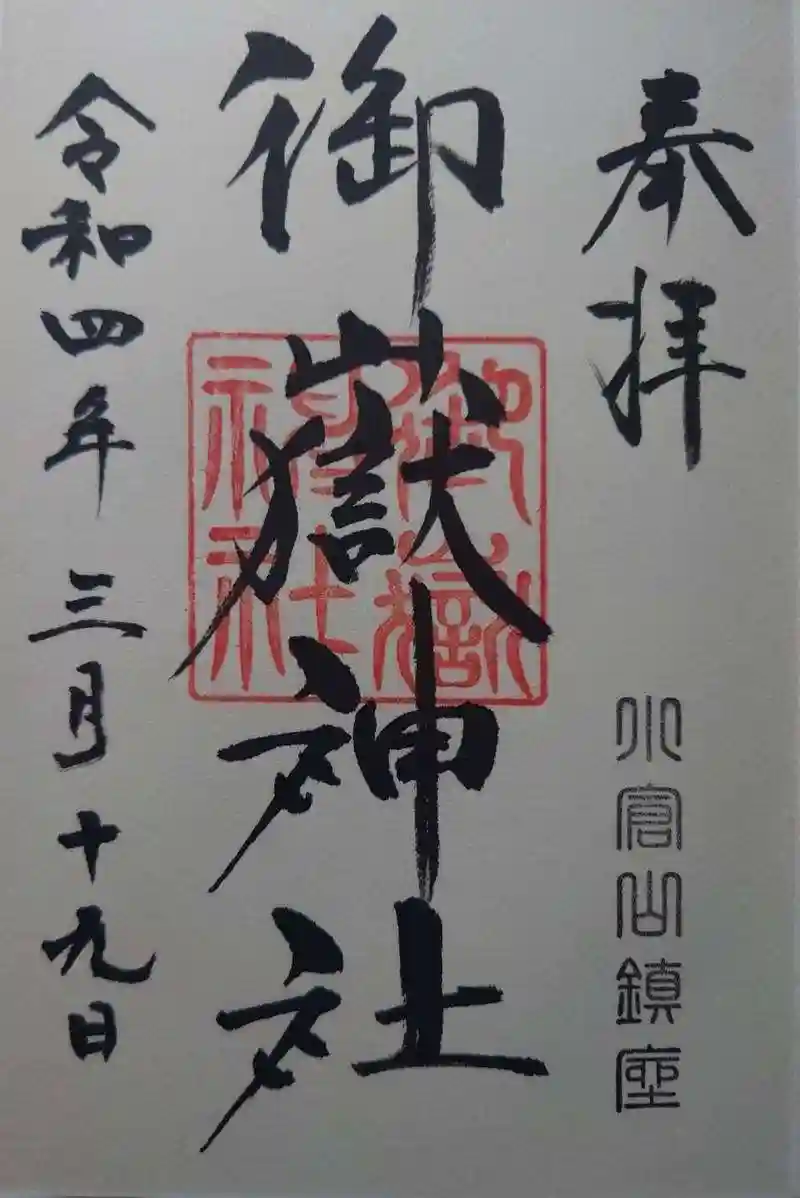 奉拝
小倉山鎮座
御嶽神社
御嶽神社
令和四年三月十九日